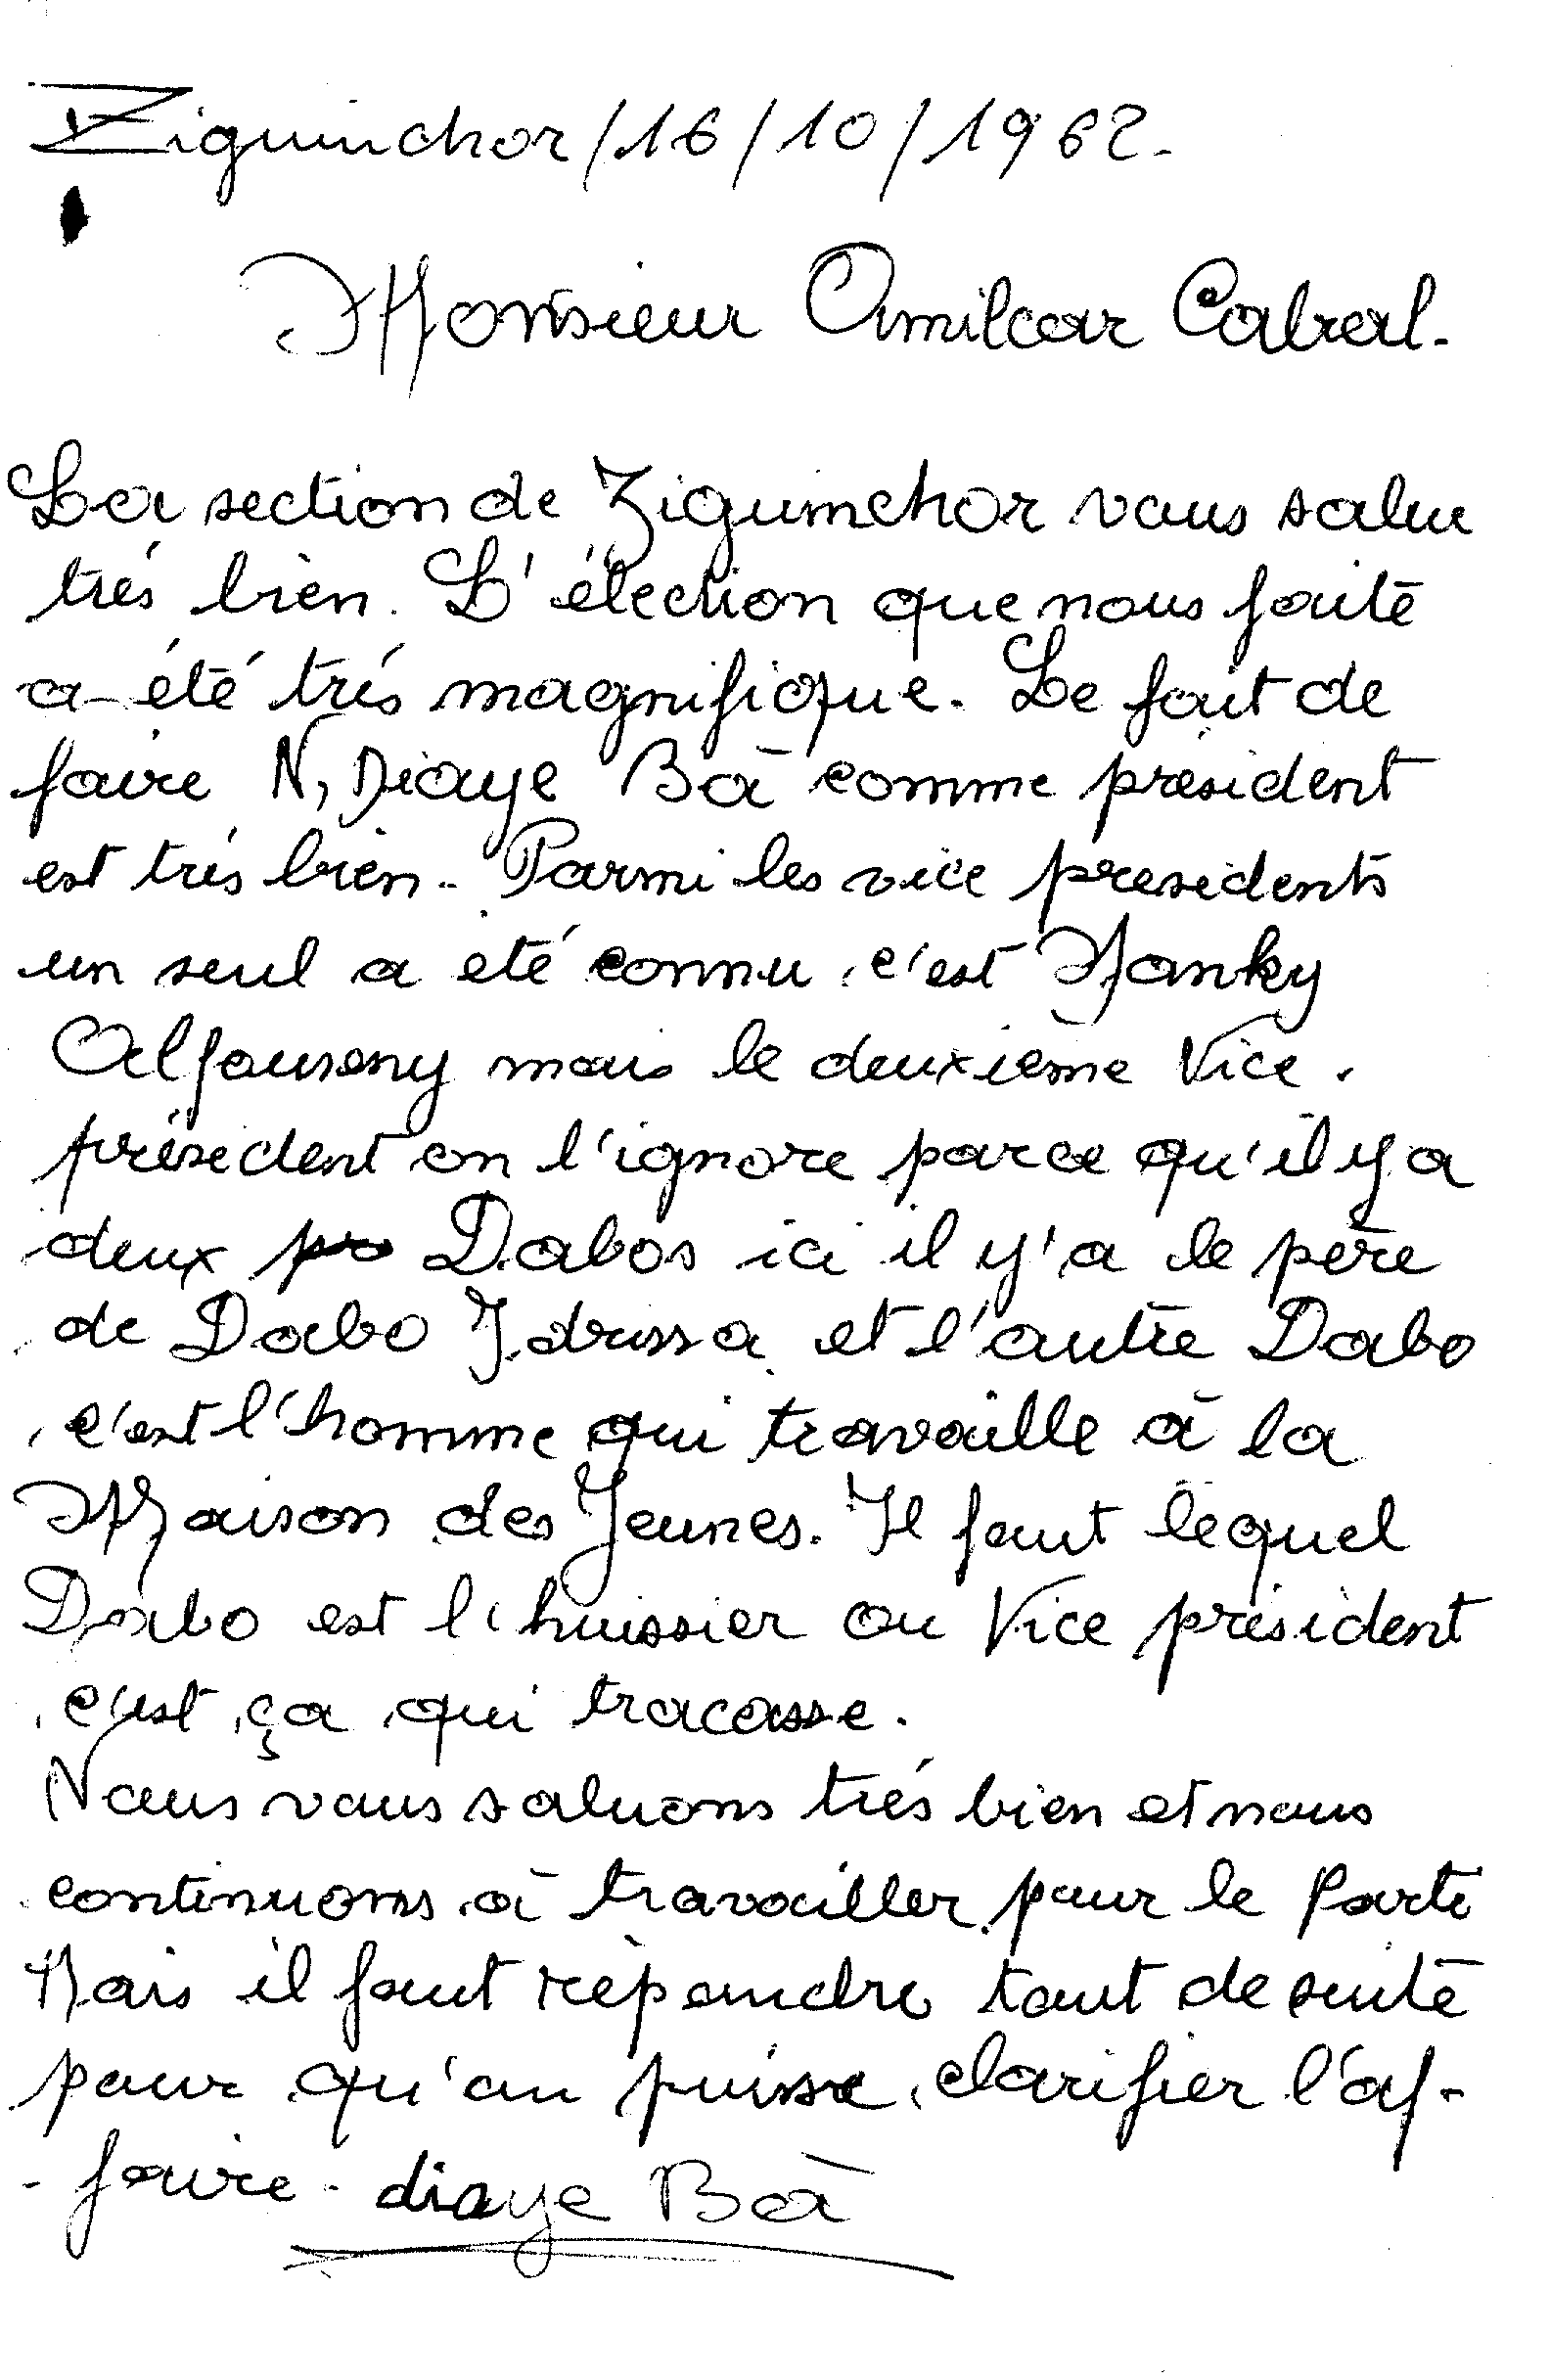 Ziguinchor/16/10/1962.
Monsieur Amilcar Cabral.
La section de Ziguinchor vous salue
trés bien. L'élection que nous faite
a été trés magnifique. Le fait de
faire N, Diaye Bà comme président
est trés bien. Parmi les vice presidents
un seul a été connu c'est Manky
Alfousseny mais le deuxième Vice.
président on l'ignore parce qu'il y a
deux Dabos ici il y'a le père
de Dabo Idrissa et l'autre Dabo
c'est l'homme qui travaille à la
Maison des Jeunes. Il faut lequel
Dabo est l'huissier ou Vice président
c'est ça qui tracasse.
Nous vous saluons trés bien et nous
continuons à travailler pour le Parti
Mais il faut répondre tout de suite
pour qu'on puisse clarifier l'af-
-faire. diaye Bà